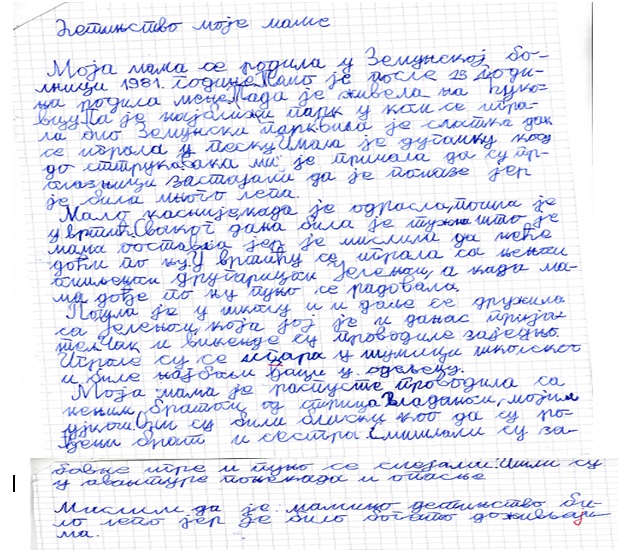 Детињство моје маме
Моја мама се родила у Земунској бо-
лници 1981. године. Мама је после 23 годи-
на родила мене. Тада је живела на Ћуко-
вцу. Па је најближи парк у ком се игра-
ла био Земунски парк. Била је слатка док
се играла у песку. Имала је дугачку косу
до струка. Бака ми је причала да су пр-
олазници застајали да је помазе јер
је била много лепа.
Мало касније, када је одрасла, пошла је
у вртић. Сваког дана била је тужна што је
мама оставља јер је мислила да неће
доћи по њу. У вртићу се играла са њеном
омиљеном другарицом Јеленом, а када ма-
ма дође по њу пуно се радовала.
Пошла је у школу и и даље се дружила
са Јеленом, која јој је и данас прија-
тељ. Чак и викенде су проводиле заједно.
Играле су се испара у шумици школског
и биле најбољи ђаци у одељењу.
Моја мама је распусте проводила са
њеним братом од стрица Владаном, мојим
ујком. Они су били блиски као да су ро-
ђени брат и сестра. Смишљали су за-
бавне игре и пуно се смејали. Ишли су
у авантуре понекада и опасне.
Мислим да је мамино детињство би-
ло лепо јер је било богато доживљаји-
ма.